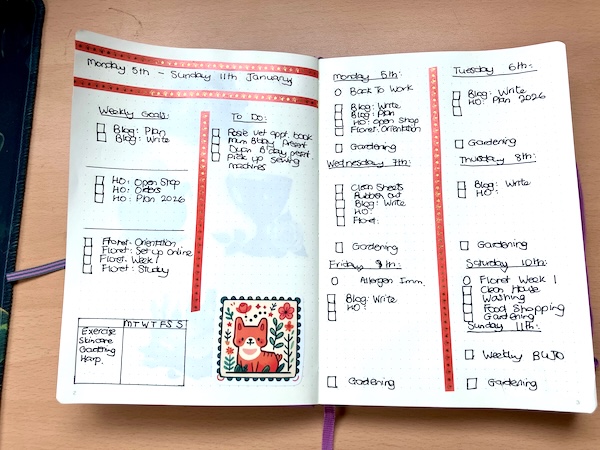 Monday 5th - Sunday 11th January
Weekly Goals:
Blog: Plan
Blog: Write
HO: Open Shop
HO: Orders
HO: Plan 2026
Floret: Orientation
Floret: Set up Online
Floret: Week 1
Floret: Study
MTWTFSS
Exercise
Skincare
Gardening
Harp.
To Do:
Rosie Vet appt. book
Mum B'day Present
Dyan B'day present.
Pick up Sewing
machines
2
Monday 5th:
Back To Work
Blog: Write
Blog: Plan
HO: Open Shop
Floret: Orientation
Gardening
Wednesday 7th:
Clean Sheets
Rubber cut
Blog: Write
HO:
Floret:
Gardening
Friday 9th:
Allergen Imm.
Blog: Write
HO:
Gardening
Tuesday 6th:
Blog: Write
HO: Plan 2026
Gardening
Thursday 8th:
Blog: Write
HO:
Gardening
Saturday 10th:
Floret Week 1
Clean House
Washing
Food Shopping
Gardening
Sunday 11th:
Weekly BUJO
Gardening
3